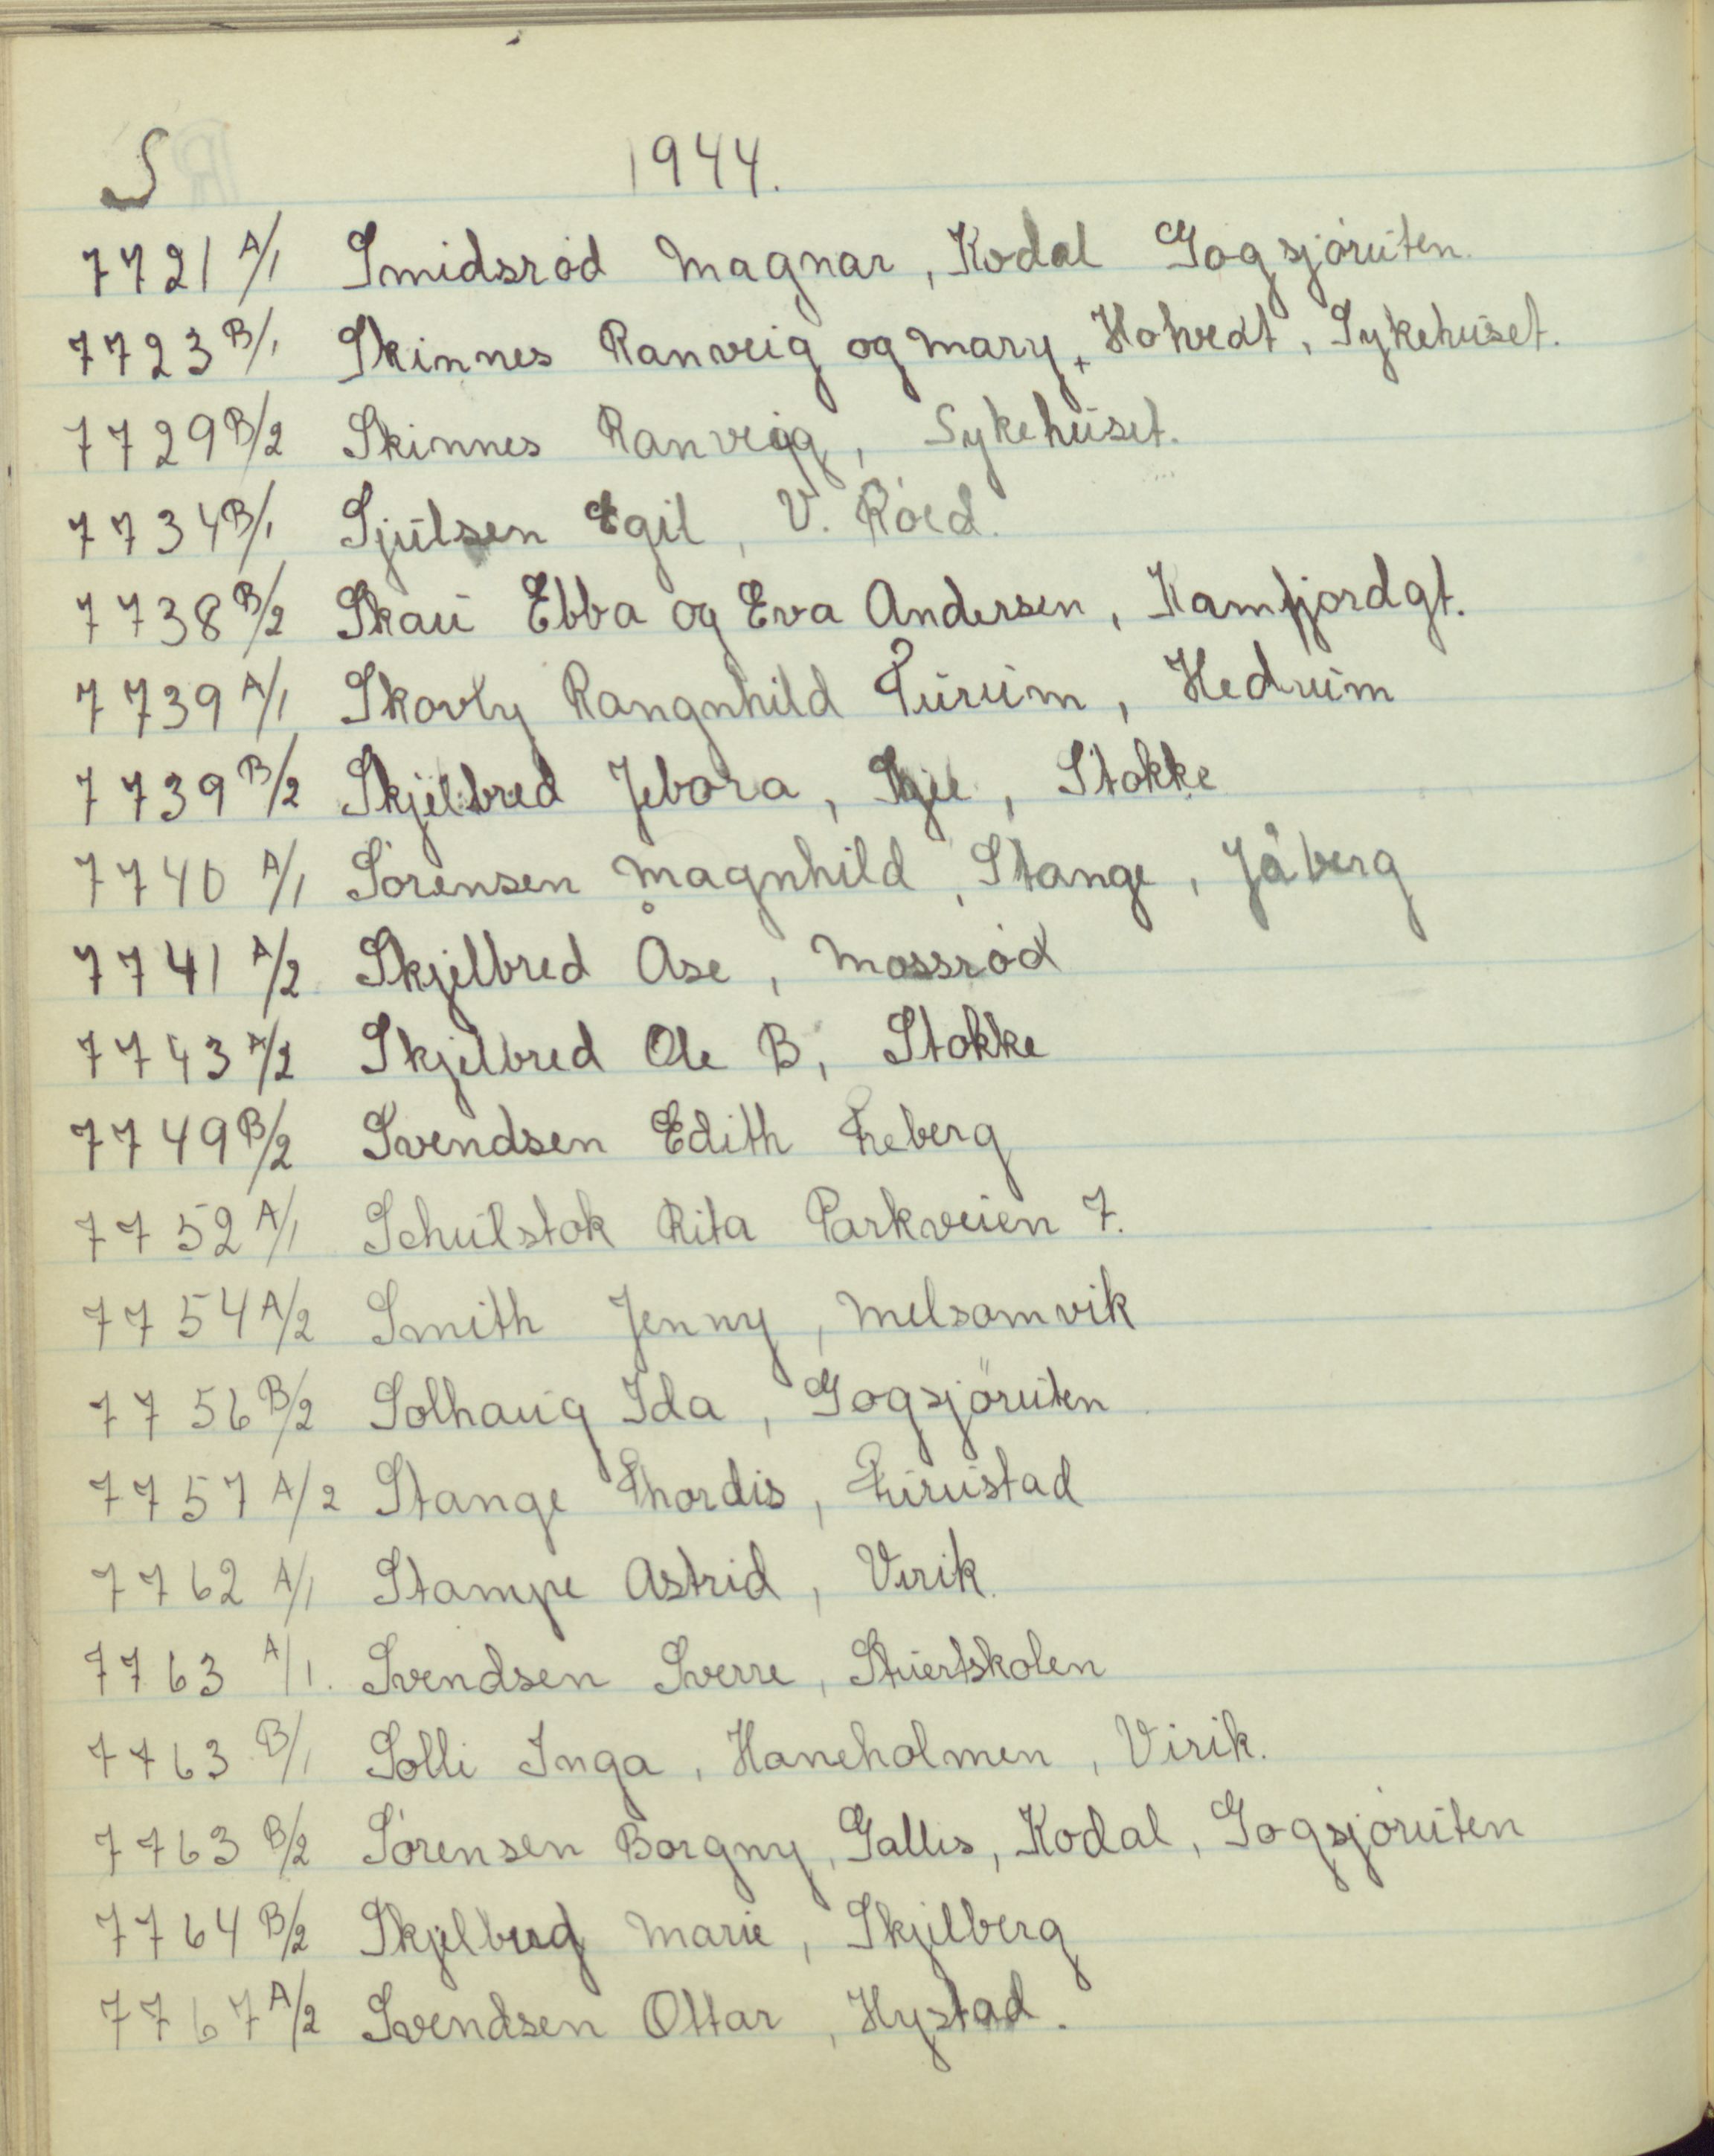 S 1944.
7721 A/1 Smidsród Magnar, Kodal Gogsjóruten.
7723 B/1 Skinnes Ranveig og Mary, Hotvedt, Sykehuset.
7729 B/2 Skinnes Ranveig, Sykehuset.
7734 B/1 Sjulsen Egil, V. Róed.
7738 B/2 Skau Ebba og Eva Andersen, Kamfjordgt.
7739 A/1 Skovly Rangnhild Furum, Hedrum
7739 B/2 Skjelbred Jebora, Stokke
7740 A/1 Sórensen Magnhild, Stange, Jåberg
7741 A/2 Skjelbred Åse, Mossród
7743 A/2 Skjelbred Ole B, Stokke
7749 B/2 Svendsen Edith Freberg
7752 A/1 Schulstok Rita Parkveien 7.
7754 A/2 Smith Jenny, Melsomvik
7756 B/2 Solhaug Ida, Gogsjöruten
7757 A/2 Stange Thordis, Furustad
7762 A/1 Stampe Astrid, Virik.
7763 A/1. Svendsen Sverre, Stuertskolen
7763 B/1 Solli Inga, Haneholmen, Virik.
7763 B/2 Sórensen Borgny, Galles, Kodal, Gogsjóruten
7764 B/2 Skjelberg Marie, Skjelberg
7767 A/2 Svendsen Ottar, Hystad.